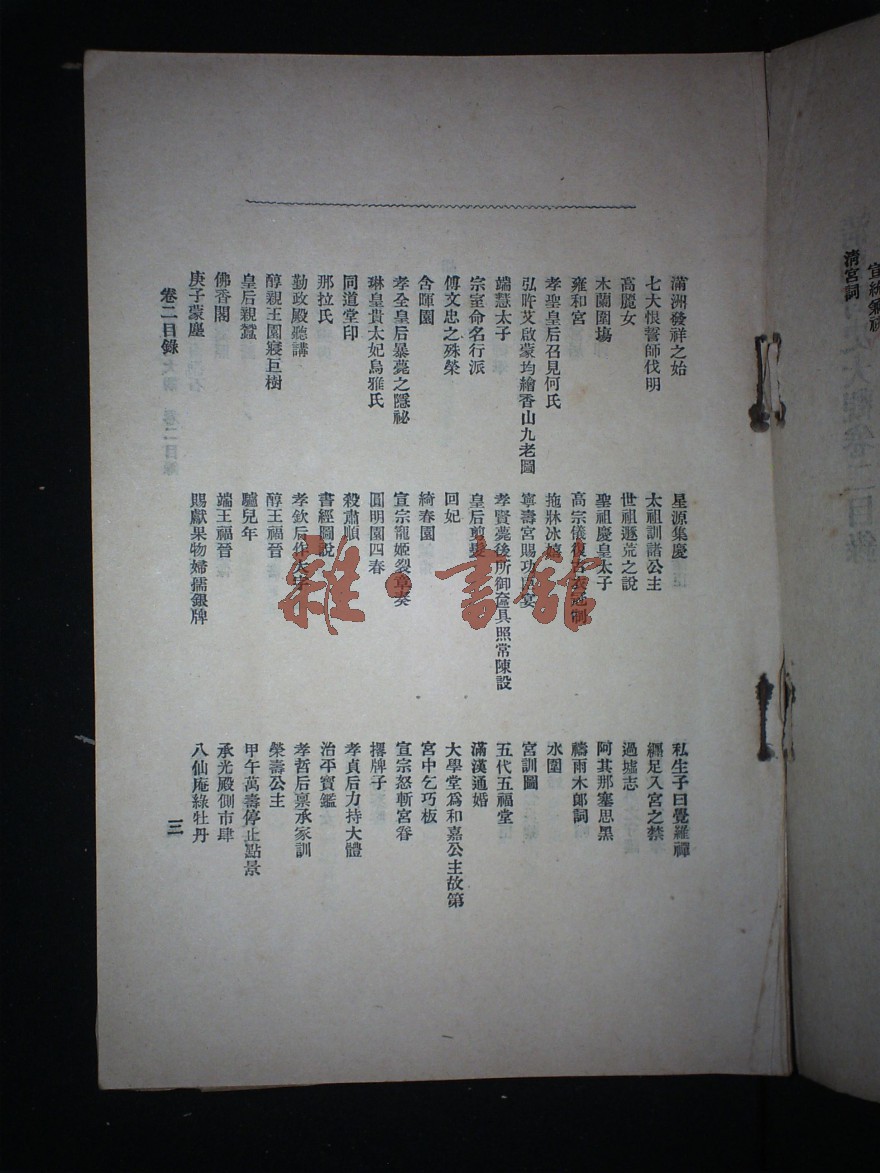 清宮詞
滿洲發祥之始
星源集慶
私生子曰覺羅禪
七大恨誓師伐明
太祖訓諸公主
纏足入宮之禁
高麗女
世祖遯荒之說
過墟志
木蘭圍塲
聖祖慶皇太子
阿其那塞思黑
雍和宮
高宗儀復古衣冠制
禱雨木郎詞
孝聖皇后召見何氏
拖牀冰嬉
水圍
弘旿艾啟蒙均繪香山九老圖
寧壽宮賜功臣宴
宮訓圖
端慧太子
孝賢薨後所御奩具照常陳設
五代五福堂
宗室命名行派
皇后剪髮
滿漢通婚
傅文忠之殊榮
回妃
大學堂爲和嘉公主故第
含暉園
綺春園
宮中乞巧板
孝全皇后暴薨之隱祕
宣宗寵姬裂章奏
宣宗怒斬宮眷
琳皇貴太妃烏雅氏
圓明園四春
撂牌子
同道堂印
殺肅順
孝貞后力持大體
那拉氏
書經圖說
治平寶鑑
勤政殿聽講
孝欽后作大字
孝哲后禀承家訓
醇親王園寢巨樹
醇王福晉
榮壽公主
皇后親蠶
驢兒年
甲午萬壽停止點景
佛香閣
端王福晉
承光殿側市肆
庚子蒙塵
賜獻果物婦孺銀牌
八仙庵綠牡丹
卷二目錄
三
雜·書館